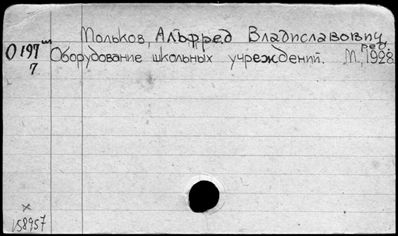 Мольков, Альфред Владиславович,
ред.
О 197 ш
7
Оборудование школьных учреждений. М, 1928.
x
158957